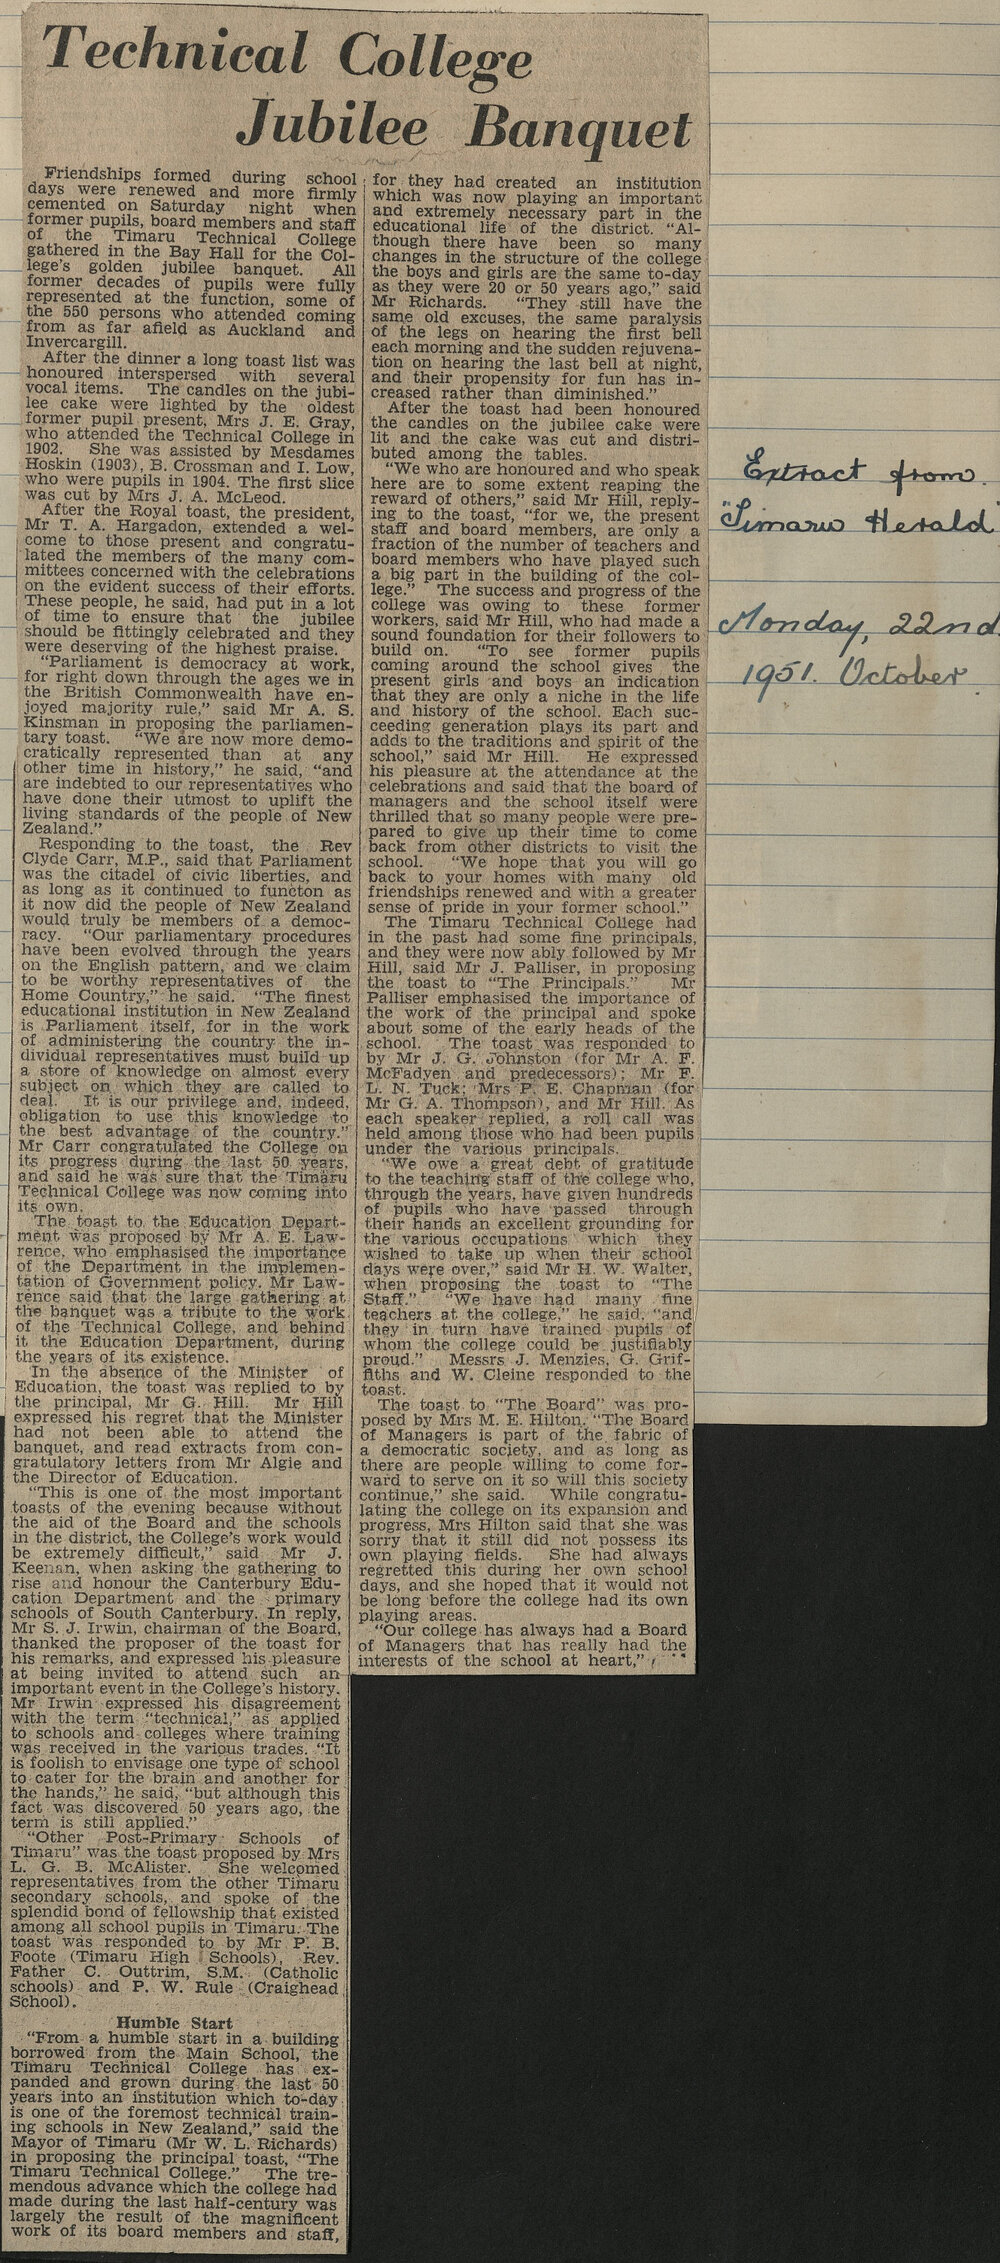 Technical College
Jubilee Banquet
Friendships formed during school
days were renewed and more firmly
cemented on Saturday night when
former pupils, board members and staff
of the Timaru Technical College
gathered in the Bay Hall for the Col-
lege's golden jubilee banquet. All
former decades of pupils were fully
represented at the function, some of
the 550 persons who attended coming
from as far afield as Auckland and
Invercargill.
After the dinner a long toast list was
honoured interspersed with several
vocal items. The candles on the jubi-
lee cake were lighted by the oldest
former pupil present, Mrs J. E. Gray,
who attended the Technical College in
1902. She was assisted by Mesdames
Hoskin (1903), B. Crossman and I. Low,
who were pupils in 1904. The first slice
was cut by Mrs J. A. McLeod.
After the Royal toast, the president,
Mr T. A. Hargadon, extended a wel-
come to those present and congratu-
lated the members of the many com-
mittees concerned with the celebrations
on the evident success of their efforts.
These people, he said, had put in a lot
of time to ensure that the jubilee
should be fittingly celebrated and they
were deserving of the highest praise.
"Parliament is democracy at work,
for right down through the ages we in
the British Commonwealth have en-
joyed majority rule," said Mr A. S.
Kinsman in proposing the parliamen-
tary toast. "We are now more demo-
cratically represented than at any
other time in history," he said, "and
are indebted to our representatives who
have done their utmost to uplift the
living standards of the people of New
Zealand."
Responding to the toast, the Rev
Clyde Carr, M.P., said that Parliament
was the citadel of civic liberties, and
as long as it continued to functon as
it now did the people of New Zealand
would truly be members of a democ-
racy. "Our parliamentary procedures
have been evolved through the years
on the English pattern, and we claim
to be worthy representatives of the
Home Country," he said. "The finest
educational institution in New Zealand
is Parliament itself, for in the work
of administering the country the in-
dividual representatives must build up
a store of knowledge on almost every
subject on which they are called to
deal. It is our privilege and, indeed,
obligation to use this knowledge to
the best advantage of the country."
Mr Carr congratulated the College on
its progress during the last 50 years,
and said he was sure that the Timaru
Technical College was now coming into
its own.
The toast to the Education Depart-
ment was proposed by Mr A. E. Law-
rence, who emphasised the importance
of the Department in the implemen-
tation of Government policy. Mr Law-
rence said that the large gathering at
the banquet was a tribute to the work
of the Technical College, and behind
it the Education Department, during
the years of its existence.
In the absence of the Minister of
Education, the toast was replied to by
the principal, Mr G. Hill. Mr Hill
expressed his regret that the Minister
had not been able to attend the
banquet, and read extracts from con-
gratulatory letters from Mr Algie and
the Director of Education.
"This is one of the most important
toasts of the evening because without
the aid of the Board and the schools
in the district, the College's work would
be extremely difficult," said Mr J.
Keenan, when asking the gathering to
rise and honour the Canterbury Edu-
cation Department and the primary
schools of South Canterbury. In reply,
Mr S. J. Irwin, chairman of the Board,
thanked the proposer of the toast for
his remarks, and expressed his pleasure
at being invited to attend such an
important event in the College's history.
Mr Irwin expressed his disagreement
with the term "technical," as applied
to schools and colleges where training
was received in the various trades. "It
is foolish to envisage one type of school
to cater for the brain and another for
the hands," he said, "but although this
fact was discovered 50 years ago, the
term is still applied."
"Other Post-Primary Schools of
Timaru" was the toast proposed by Mrs
L. G. B. McAlister. She welcomed
representatives from the other Timaru
secondary schools, and spoke of the
splendid bond of fellowship that existed
among all school pupils in Timaru. The
toast was responded to by Mr P. B.
Foote (Timaru High Schools), Rev.
Father C. Outtrim, S.M. (Catholic
schools) and P. W. Rule (Craighead
School).
Humble Start
"From a humble start in a building
borrowed from the Main School, the
Timaru Technical College has ex-
panded and grown during the last 50
years into an institution which to-day
is one of the foremost technical train-
ing schools in New Zealand," said the
Mayor of Timaru (Mr W. L. Richards)
in proposing the principal toast, "The
Timaru Technical College." The tre-
mendous advance which the college had
made during the last half-century was
largely the result of the magnificent
work of its board members and staff,
for they had created an institution
which was now playing an important
and extremely necessary part in the
educational life of the district. "Al-
though there have been so many
changes in the structure of the college
the boys and girls are the same to-day
as they were 20 or 50 years ago," said
Mr Richards. "They still have the
same old excuses, the same paralysis
of the legs on hearing the first bell
each morning and the sudden rejuvena-
tion on hearing the last bell at night,
and their propensity for fun has in-
creased rather than diminished."
After the toast had been honoured
the candles on the jubilee cake were
lit and the cake was cut and distri-
buted among the tables.
"We who are honoured and who speak
here are to some extent reaping the
reward of others," said Mr Hill, reply-
ing to the toast, "for we, the present
staff and board members, are only a
fraction of the number of teachers and
board members who have played such
a big part in the building of the col-
lege." The success and progress of the
college was owing to these former
workers, said Mr Hill, who had made a
sound foundation for their followers to
build on. "To see former pupils
coming around the school gives the
present girls and boys an indication
that they are only a niche in the life
and history of the school. Each suc-
ceeding generation plays its part and
adds to the traditions and spirit of the
school," said Mr Hill. He expressed
his pleasure at the attendance at the
celebrations and said that the board of
managers and the school itself were
thrilled that so many people were pre-
pared to give up their time to come
back from other districts to visit the
school. "We hope that you will go
back to your homes with many old
friendships renewed and with a greater
sense of pride in your former school."
The Timaru Technical College had
in the past had some fine principals,
and they were now ably followed by Mr
Hill, said Mr J. Palliser, in proposing
the toast to "The Principals." Mr
Palliser emphasised the importance of
the work of the principal and spoke
about some of the early heads of the
school. The toast was responded to
by Mr J. G. Johnston (for Mr A. F.
McFadyen and predecessors); Mr F.
L. N. Tuck; Mrs P. E. Chapman (for
Mr G. A. Thompson), and Mr Hill. As
each speaker replied, a roll call was
held among those who had been pupils
under the various principals.
"We owe a great debt of gratitude
to the teaching staff of the college who,
through the years, have given hundreds
of pupils who have passed through
their hands an excellent grounding for
the various occupations which they
wished to take up when their school
days were over," said Mr H. W. Walter,
when proposing the toast to "The
Staff." "We have had many fine
teachers at the college," he said, "and
they in turn have trained pupils of
whom the college could be justifiably
proud." Messrs J. Menzies, G. Grif-
fiths and W. Cleine responded to the
toast.
The toast to "The Board" was pro-
posed by Mrs M. E. Hilton. "The Board
of Managers is part of the fabric of
a democratic society, and as long as
there are people willing to come for-
ward to serve on it so will this society
continue," she said. While congratu-
lating the college on its expansion and
progress, Mrs Hilton said that she was
sorry that it still did not possess its
own playing fields. She had always
regretted this during her own school
days, and she hoped that it would not
be long before the college had its own
playing areas.
"Our college has always had a Board
of Managers that has really had the
interests of the school at heart,"
Extract from.
"Timaru Herald
Monday, 22nd
1951. October.